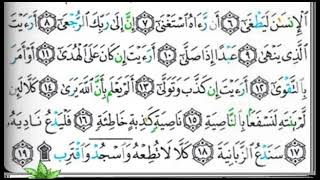 ٱلْإِنسَٰنَ لَيَطْغَىٰٓ ٦ أَن رَّءَاهُ ٱسْتَغْنَىٰٓ ٧ إِنَّ إِلَىٰ رَبِّكَ ٱلرُّجْعَىٰٓ ٨ أَرَءَيْتَ
ٱلَّذِى يَنْهَىٰ ٩ عَبْدًا إِذَا صَلَّىٰٓ ١٠ أَرَءَيْتَ إِن كَانَ عَلَى ٱلْهُدَىٰٓ ١١ أَوْ أَمَرَ
بِٱلتَّقْوَىٰٓ ١٢ أَرَءَيْتَ إِن كَذَّبَ وَتَوَلَّىٰٓ ١٣ أَلَمْ يَعْلَم بِأَنَّ ٱللَّهَ يَرَىٰ ١٤ كَلَّا لَئِن
لَّمْ يَنتَهِ لَنَسْفَعًۢا بِٱلنَّاصِيَةِ ١٥ نَاصِيَةٍ كَٰذِبَةٍ خَاطِئَةٍ ١٦ فَلْيَدْعُ نَادِيَهُۥ
١٧ سَنَدْعُ ٱلزَّبَانِيَةَ ١٨ كَلَّا لَا تُطِعْهُ وَٱسْجُدْ وَٱقْتَرِب ۩ ١٩